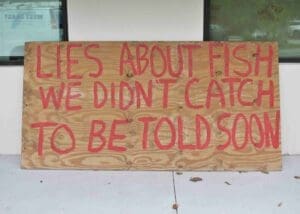 LIES ABOUT FISH
WE DIDNT CATCH
TO BE TOLD SOON